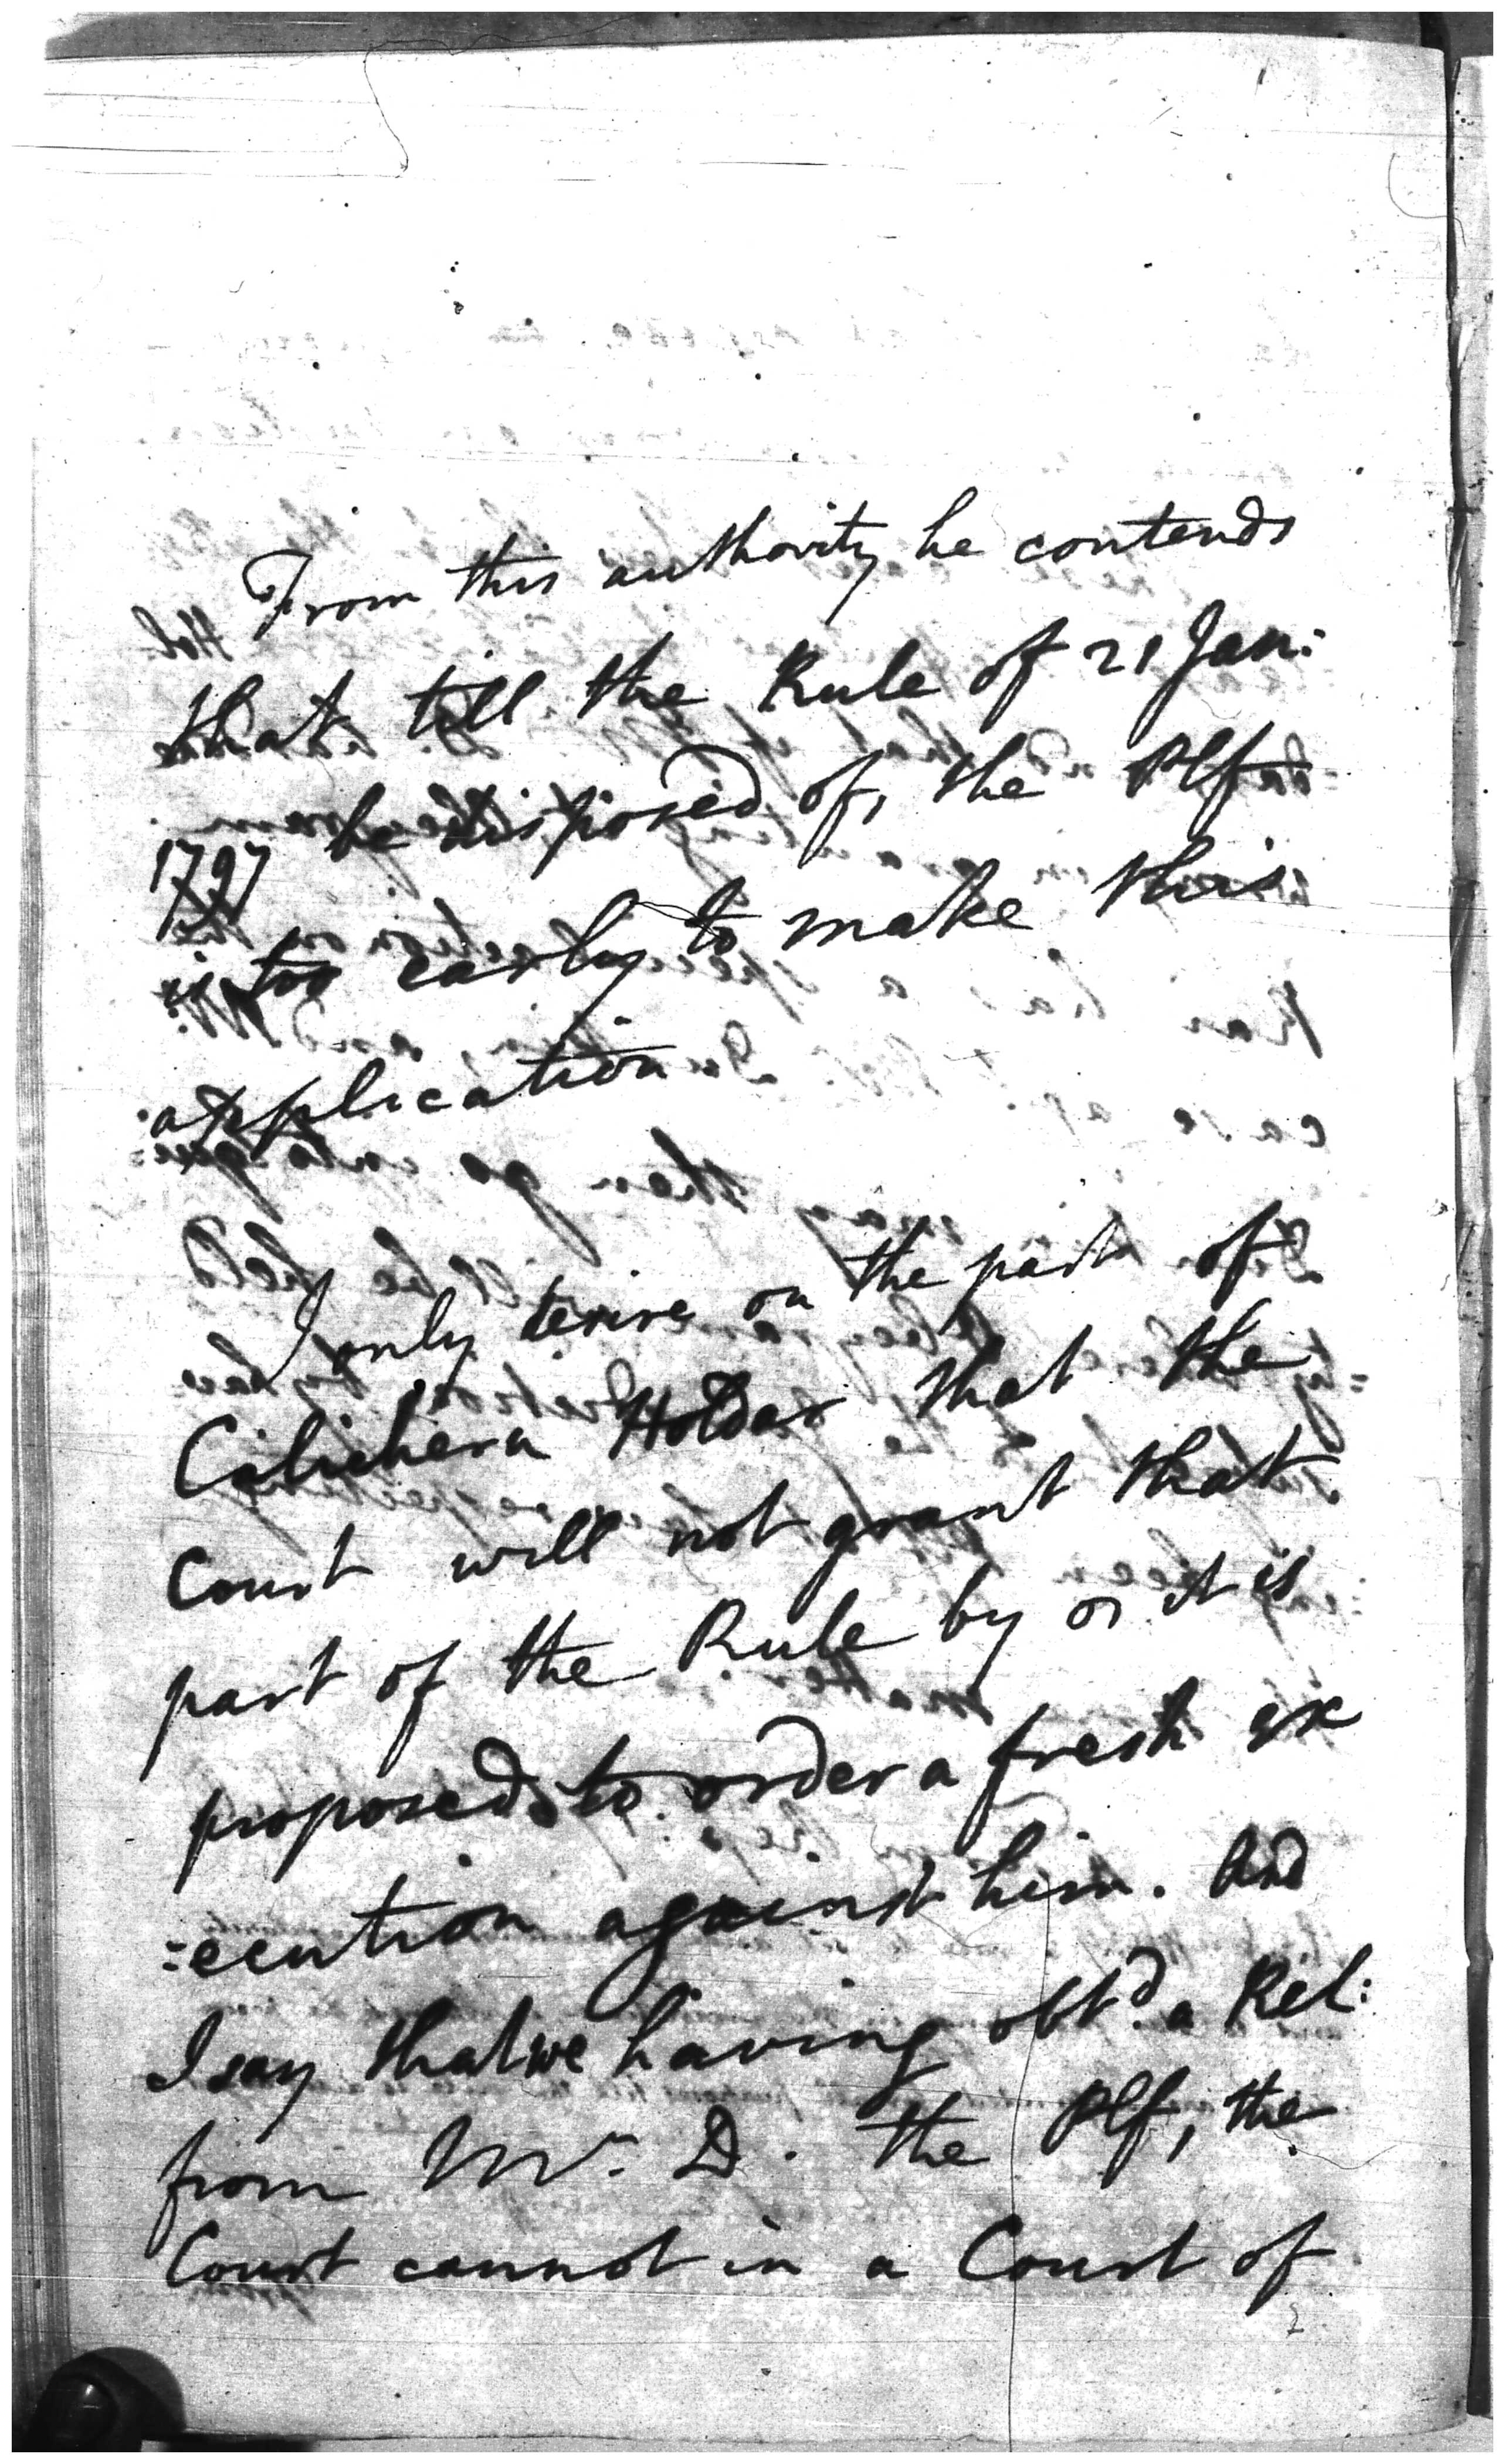 From this authority he contends
that till the Rule of 21 Jan:
1797 be disposed of, the Plf
is too early to make this
application
I only desire on the part of
Calichern Holdar that the
Court will not grant that
part of the Rule by it is
proposed to order a fresh ex
=ecution against him. And
I say that we having obtd. a Rel:
from Mr. D. the Plf, the
Court cannot in a Court of